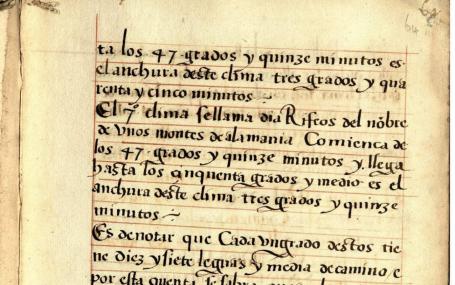 64
64
ta los 47 grados y quinze minutos es
el anchura deste clima tres grados y qua
renta y cinco minutos
El 7º clima se llama dia Rifeos del nōbre
de vnos montes de alamania Comienca de
los 47 grados y quinze minutos y llega
hasta los cinquenta grados y medio es el
anchura deste clima tres grados y quinze
minutos
Es de notar que Cada vn grado destos tie
ne diez y siete leguas y media de camino e
por esta quenta se sabra